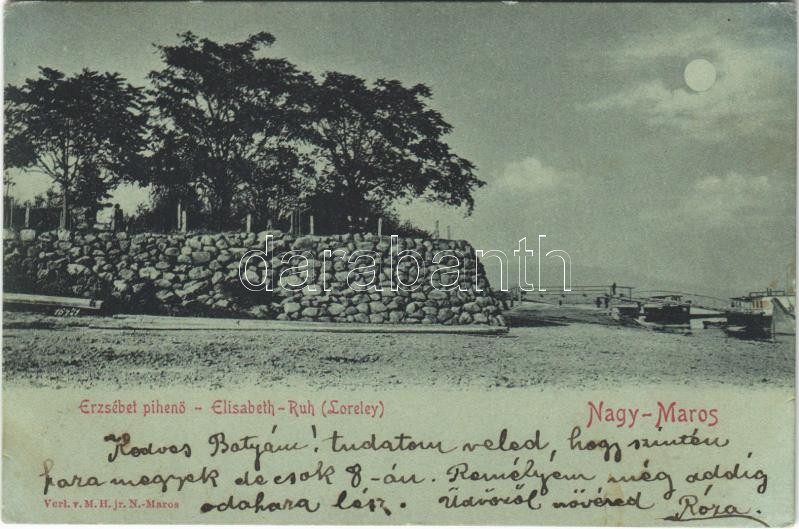 darabanth
15721
Erzsébet pihenő - Elisabeth-Ruh (Loreley)
Nagy-Maros
Kedves Batyám! tudatom veled, hogy szintén
haza megyek de csok 8-án. Remélyem még addig
odahaza lész. Üdvözöl nővéred Róza.
Verl. v. M. H. jr. N.-Maros